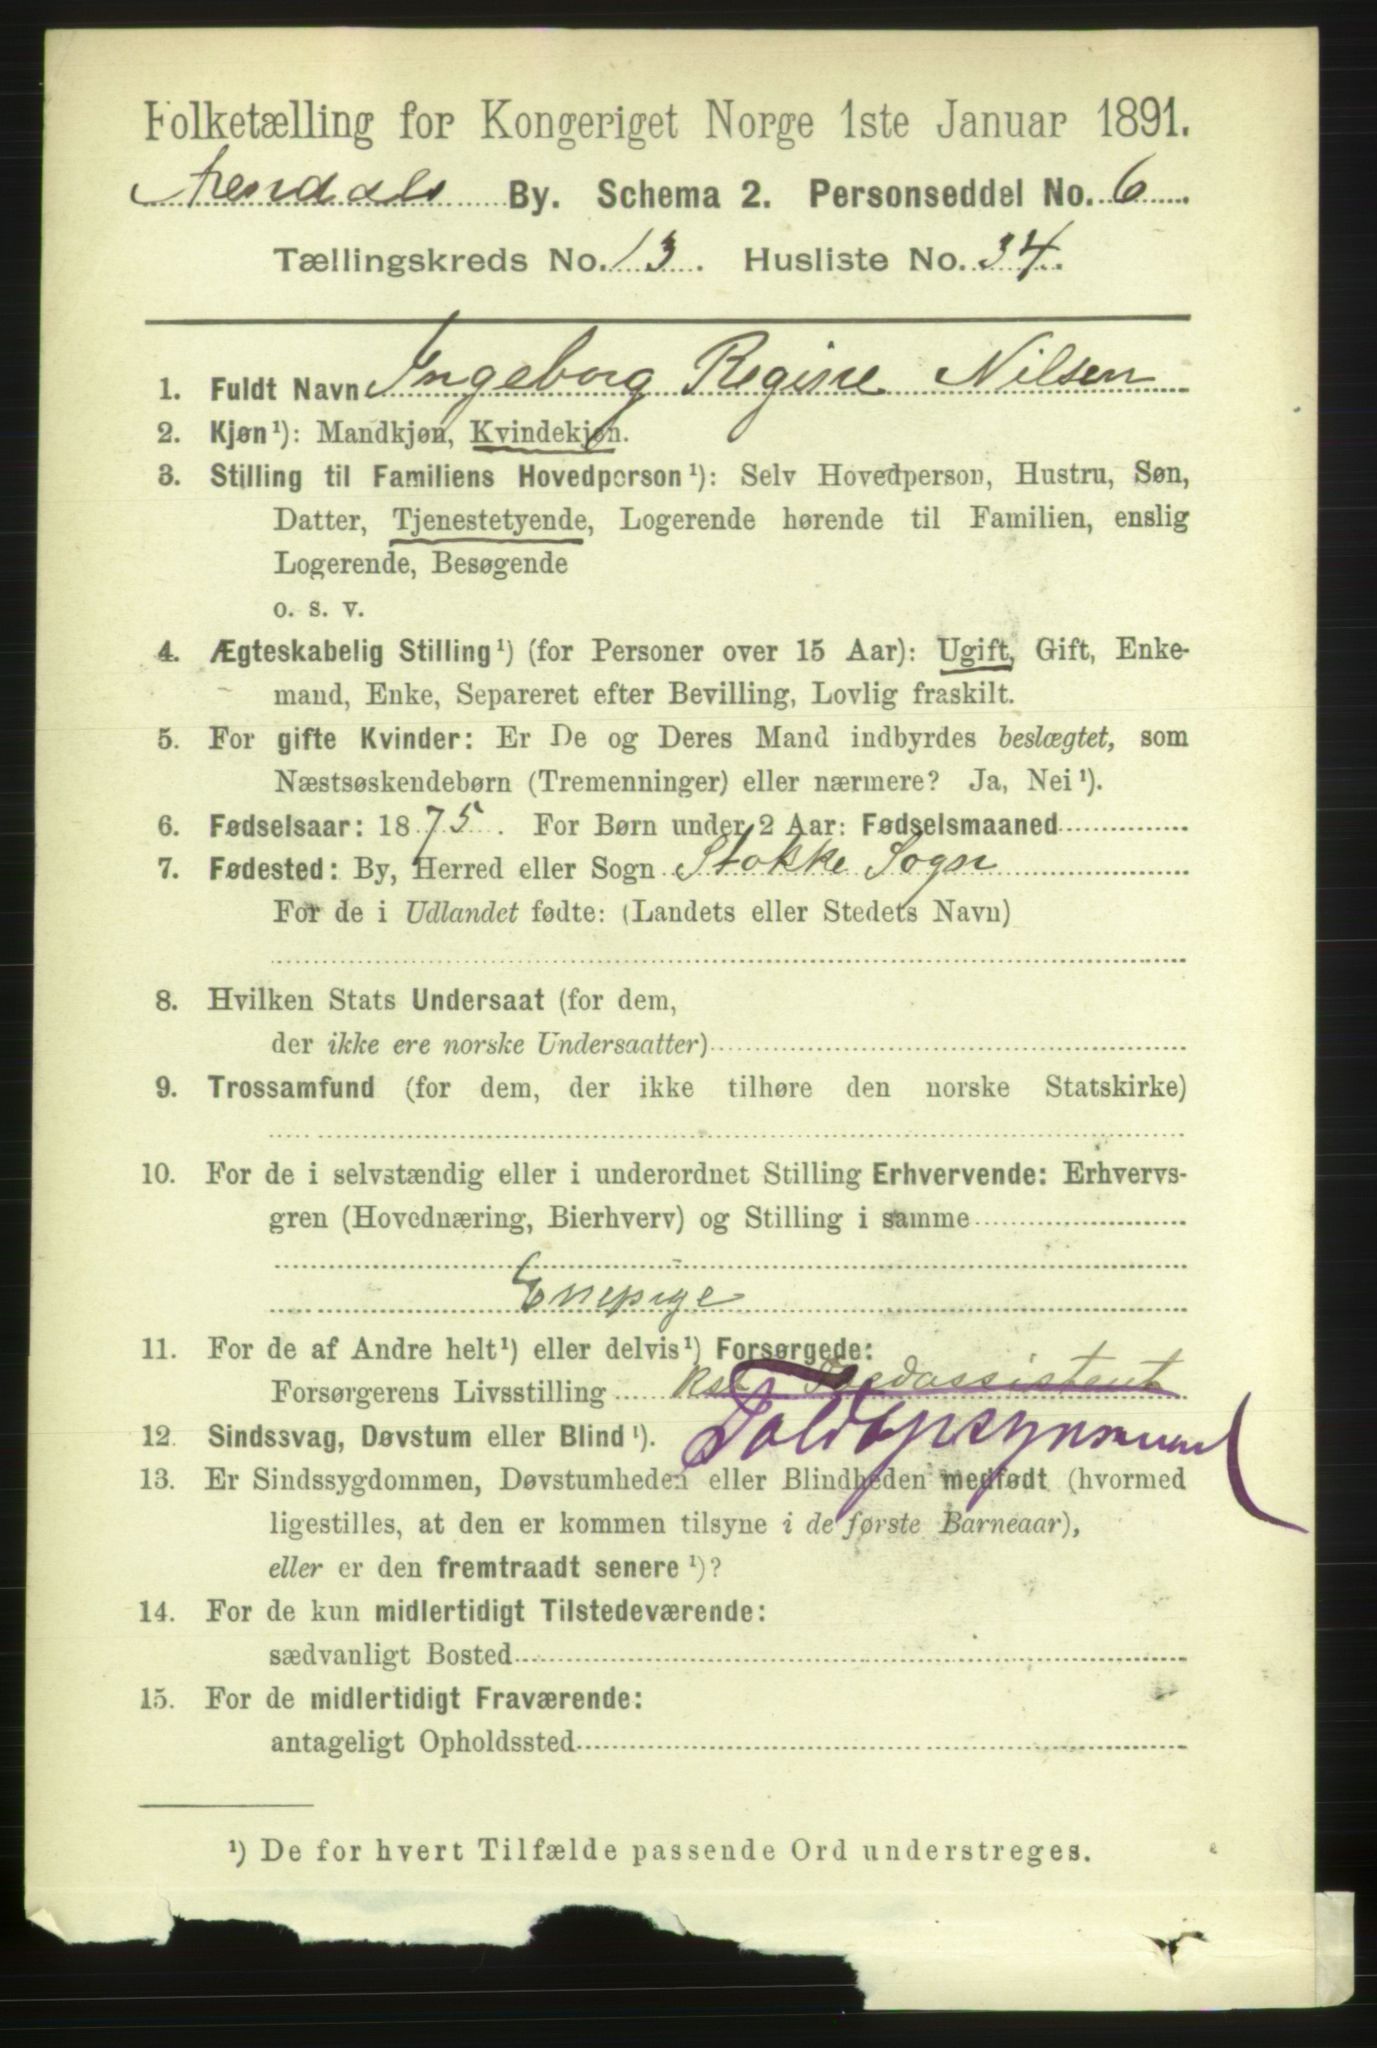 Folketælling for Kongeriget Norge 1ste Januar 1891.
Arendals By. Schema 2. Personseddel No. 6
Tællingskreds No. 13. Husliste No. 34.
1. Fuldt Navn Ingeborg Regine Nilsen
2. Kjøn¹): Mandkjøn, Kvindekjøn.
3. Stilling til Familiens Hovedperson¹): Selv Hovedperson, Hustru, Søn,
Datter, Tjenestetyende, Logerende hørende til Familien, enslig
Logerende, Besøgende
o. s. v.
4. Ægteskabelig Stilling¹) (for Personer over 15 Aar): Ugift, Gift, Enke-
mand, Enke, Separeret efter Bevilling, Lovlig fraskilt.
5. For gifte Kvinder: Er De og Deres Mand indbyrdes beslægtet, som
Næstsøskendebørn (Tremenninger) eller nærmere? Ja, Nei¹).
6. Fødselsaar: 1875. For Børn under 2 Aar: Fødselsmaaned
7. Fødested: By, Herred eller Sogn Stokke Sogn
For de i Udlandet fødte: (Landets eller Stedets Navn)
8. Hvilken Stats Undersaat (for dem,
der ikke ere norske Undersaatter)
9. Trossamfund (for dem, der ikke tilhøre den norske Statskirke)
10. For de i selvstændig eller i underordnet Stilling Erhvervende: Erhvervs-
gren (Hovednæring, Bierhverv) og Stilling i samme
Enepige
11. For de af Andre helt¹) eller delvis¹) Forsørgede:
Forsørgerens Livsstilling
12. Sindssvag, Døvstum eller Blind¹). Toldopsynsmand
13. Er Sindssygdommen, Døvstumheden eller Blindheden medfødt (hvormed
ligestilles, at den er kommen tilsyne i de første Barneaar),
eller er den fremtraadt senere¹)?
14. For de kun midlertidigt Tilstedeværende:
sædvanligt Bosted
15. For de midlertidigt Fraværende:
antageligt Opholdssted
¹) De for hvert Tilfælde passende Ord understreges.